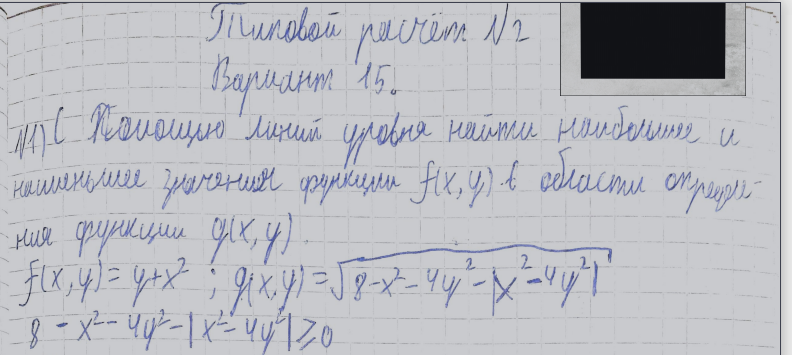 Типовой расчёт №2
Вариант 15.
№1) С Помощью линий уровня найти наибольшее и
наименьшее значения функции f(x,y) в области опреде-
ния функции g(x,y).
f(x,y) = y+x² ; g(x,y) = √(8-x²-4y²-|x²-4y²|)
8 - x² - 4y² - |x² - 4y²| ≥ 0